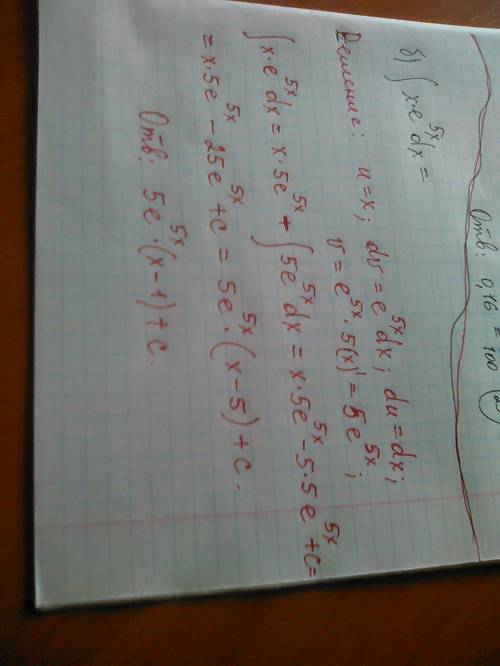 Отв: 0,16 = 100
б) ∫ x·e^5x dx =
Решение: u = x; dv = e^5x dx; du = dx;
v = e^5x · 5(x)' = 5e^5x;
∫ x·e^5x dx = x·5e^5x + ∫ 5e^5x dx = x·5e^5x - 5·5e^5x + c =
= x·5e^5x - 25e^5x + c = 5e^5x · (x - 5) + c.
Отв: 5e^5x · (x - 1) + c.